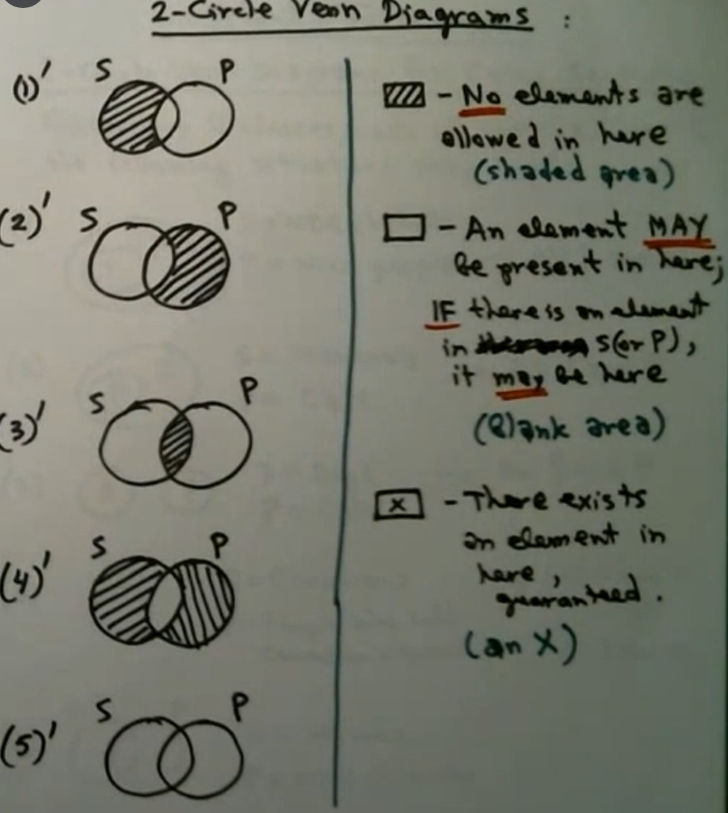 2-Circle Venn Diagrams :
(1)' S P
(2)' S P
(3)' S P
(4)' S P
(5)' S P
- No elements are
allowed in here
(shaded area)
- An element MAY
be present in here;
IF there is an element
in S(or P),
it may be here
(Blank area)
x - There exists
an element in
here,
guaranteed.
(an X)